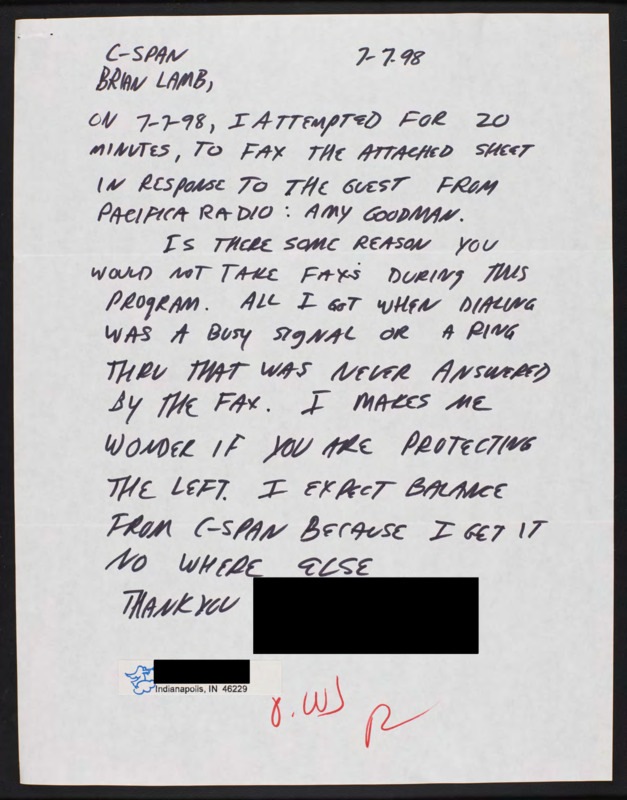 C-SPAN 7-7-98
BRIAN LAMB,
ON 7-7-98, I ATTEMPTED FOR 20
MINUTES, TO FAX THE ATTACHED SHEET
IN RESPONSE TO THE GUEST FROM
PACIFICA RADIO: AMY GOODMAN.
IS THERE SOME REASON YOU
WOULD NOT TAKE FAX'S DURING THIS
PROGRAM. ALL I GOT WHEN DIALING
WAS A BUSY SIGNAL OR A RING
THRU THAT WAS NEVER ANSWERED
BY THE FAX. I MAKES ME
WONDER IF YOU ARE PROTECTING
THE LEFT. I EXPECT BALANCE
FROM C-SPAN BECAUSE I GET IT
NO WHERE ELSE
THANK YOU
Indianapolis, IN 46229